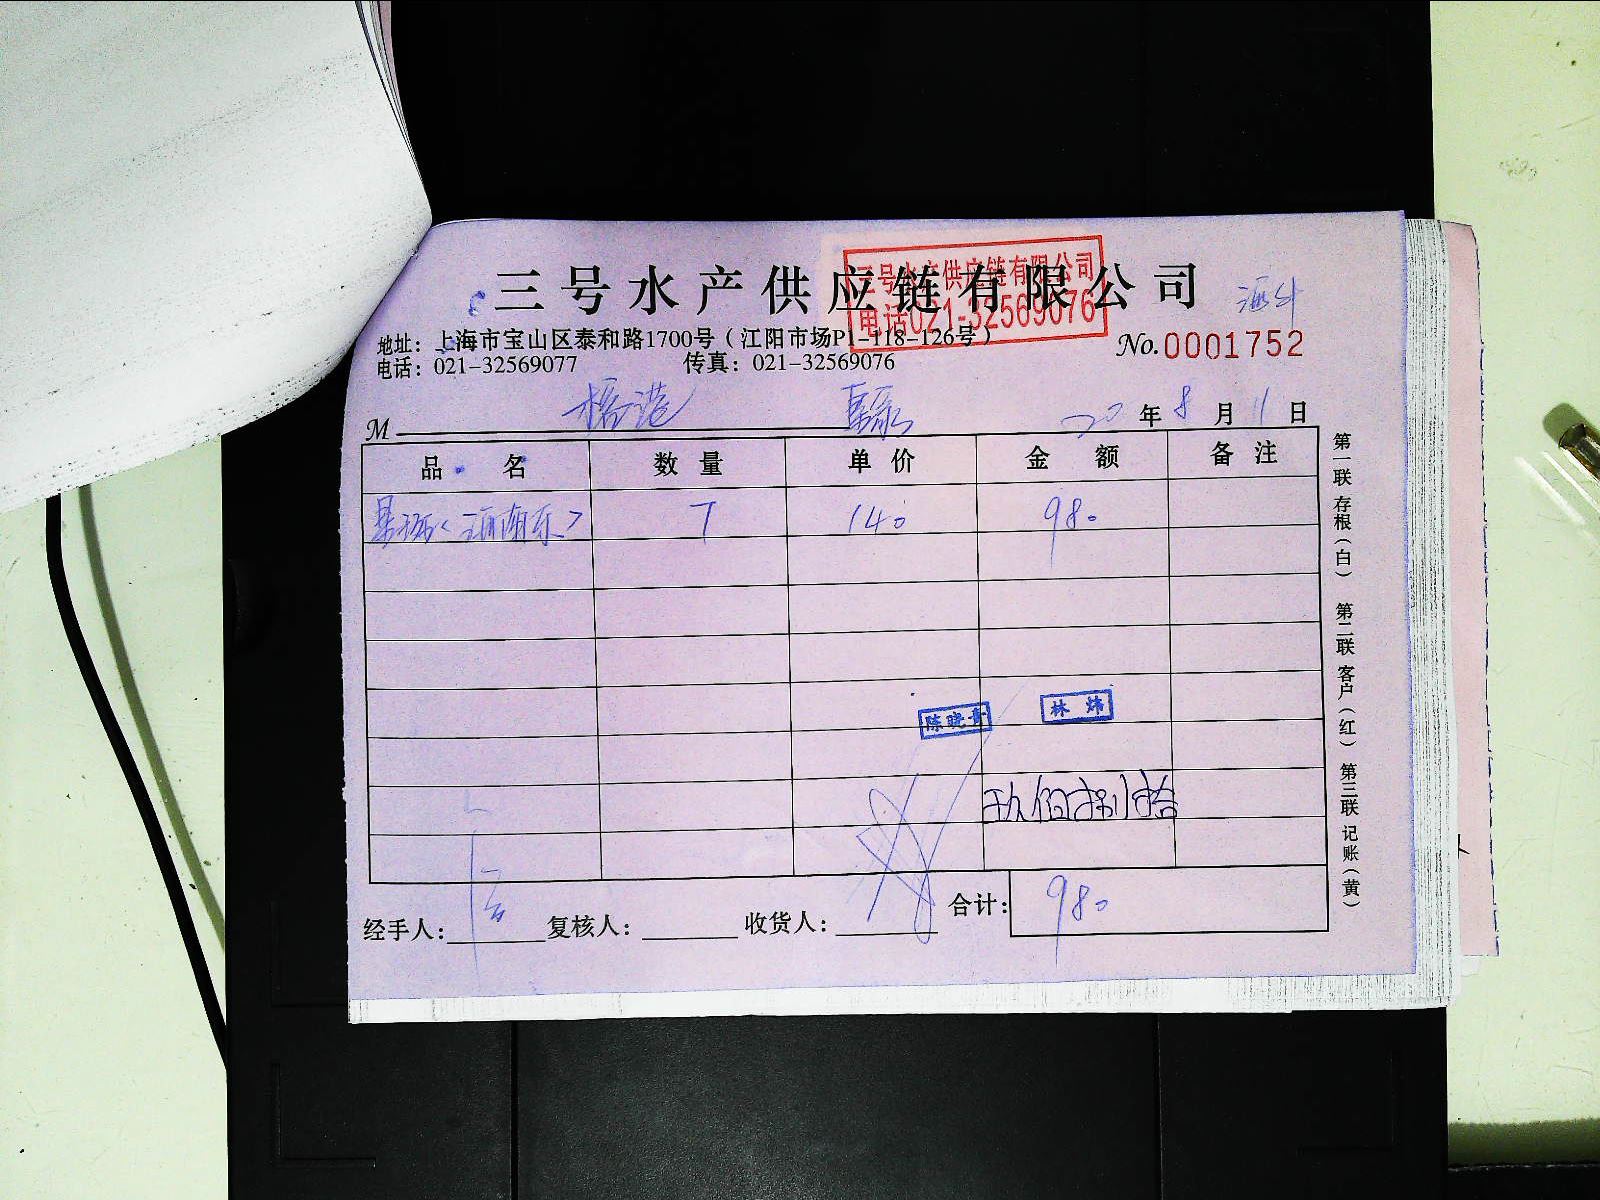 三号水产供应链有限公司
三号水产供应链有限公司
电话021-32569076
地址：上海市宝山区泰和路1700号（江阳市场P1-118-126号）
电话：021-32569077 传真：021-32569076
No.0001752
M 20年8月11日
品名 数量 单价 金额 备注
7 140 980
陈晓青 林炜
玖佰捌拾
经手人： 复核人： 收货人： 合计：980
第一联 存根（白） 第二联 客户（红） 第三联 记账（黄）